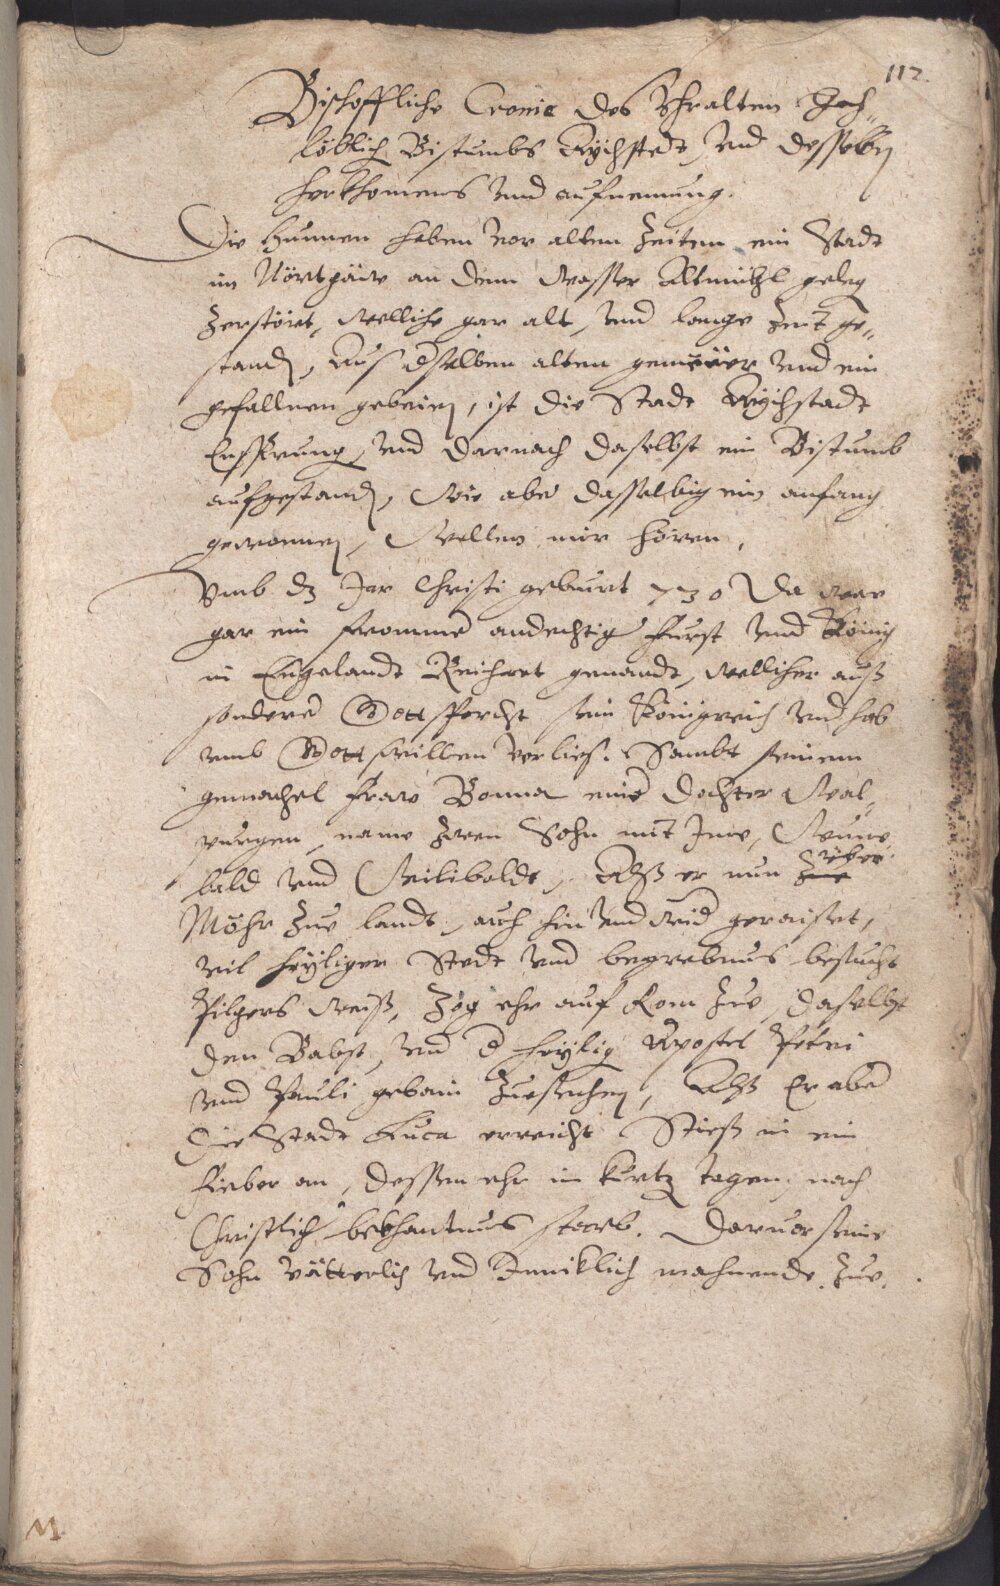 112.
Bischoffliche Cronic des Vhralten Hoch„
löblich Bistumbs Aychstedt, vnd desselbē
herkhomens vnd aufnemung.
Die Hunnen haben vor alten Zeiten ein Stadt
im Nörtgäw an dem Wasser Altmühl geleg
zerstöret, welliche gar alt, vnd lange Zeit ge„
standē, Aus dselben alten gemeüer vnd ein
gefallnen gebeiē, ist die Stadt Aychstadt
Ensprung, vnd darnach daselbst ein Bistumb
aufgestandē, Wie aber dasselbig ein anfang
gewonnē, Wellen mir hören,
Vmb dz Jar Christi geburt 730 Da war
gar ein frommer andechtig Furst vnd König
in Engelandt Reichart genandt, wellicher auß
sonderer Gottsforcht sein Königreich vnd hab
vmb Gott willen verließ. Sambt seinem
gemachel Fraw Bonna einer dochter Wal„
purgen, name zween Sohn mit Ime, Wune„
bald vnd Wilibaldt, Alß er nun Zue über
Möhr zue landt, auch hin vnd wid geraiset,
vil heyliger Stedt vnd begrebnus besucht
Pilgers weiß, Zog ehr auf Rom zue, daselbst
den Babst, vnd d heylig Apostel Petri
vnd Pauli gebain zuesuchē, Alß Er aber
die Stadt Luca erreicht Stieß in ein
fieber an, dessen ehr in kurtz tagen, nach
Christlich bekhantnus starb. Daruor seine
Sohn vätterlich vnd Inniklich mahnende zue.
M